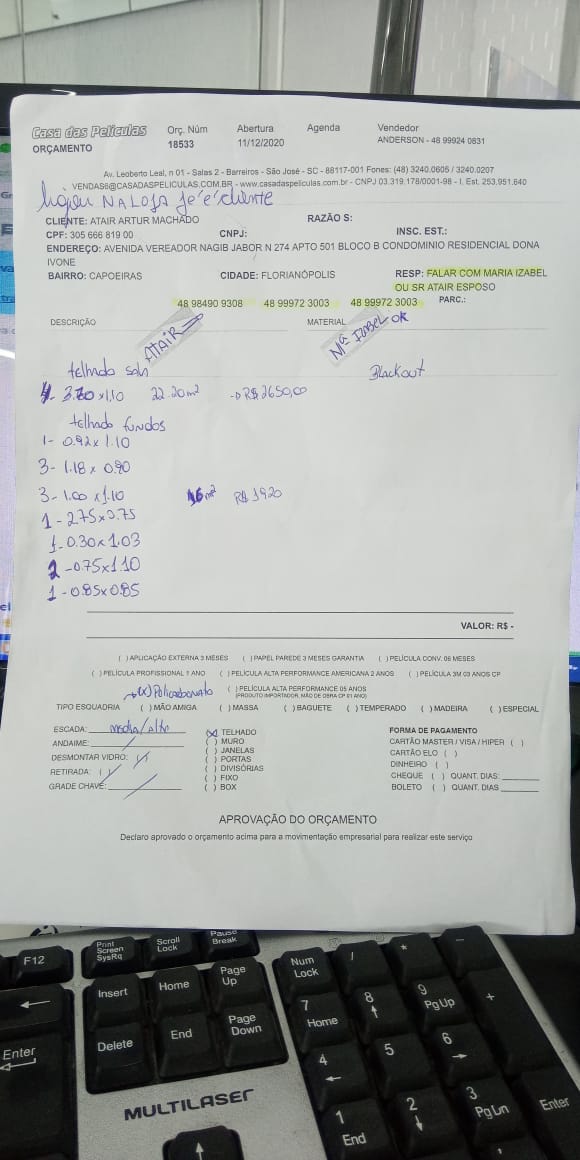 Casa das Películas Orç. Núm Abertura Agenda Vendedor
ORÇAMENTO 18533 11/12/2020 ANDERSON - 48 99924 0831
Av. Leoberto Leal, n 01 - Salas 2 - Barreiros - São José - SC - 88117-001 Fones: (48) 3240.0605 / 3240.0207
VENDAS6@CASADASPELICULAS.COM.BR - www.casadaspeliculas.com.br - CNPJ 03.319.178/0001-98 - I. Est. 253.951.640
ligou NA LOJA já é cliente
CLIENTE: ATAIR ARTUR MACHADO RAZÃO S:
CPF: 305 666 819 00 CNPJ: INSC. EST.:
ENDEREÇO: AVENIDA VEREADOR NAGIB JABOR N 274 APTO 501 BLOCO B CONDOMINIO RESIDENCIAL DONA
IVONE
BAIRRO: CAPOEIRAS CIDADE: FLORIANÓPOLIS RESP: FALAR COM MARIA IZABEL
OU SR ATAIR ESPOSO
48 98490 9308 48 99972 3003 48 99972 3003 PARC.:
DESCRIÇÃO MATERIAL
ATAIR Mª IZABEL OK
telhado Blackout
3.70 x 1.10 22.20m² R$ 2650,00
telhado fundos
1- 0.92 x 1.10
3- 1.18 x 0.90
3- 1.00 x 1.10 16m² R$ 1920
1 - 2.75 x 0.75
1 - 0.30 x 1.03
2 - 0.75 x 1.10
1 - 0.85 x 0.85
VALOR: R$ -
( ) APLICAÇÃO EXTERNA 3 MESES ( ) PAPEL PAREDE 3 MESES GARANTIA ( ) PELÍCULA CONV. 06 MESES
( ) PELÍCULA PROFISSIONAL 1 ANO ( ) PELÍCULA ALTA PERFORMANCE AMERICANA 2 ANOS ( ) PELÍCULA 3M 03 ANOS CP
(x) Policarbonato ( ) PELÍCULA ALTA PERFORMANCE 05 ANOS
(PRODUTO IMPORTADOR, MÃO DE OBRA CP 01 ANO)
TIPO ESQUADRIA ( ) MÃO AMIGA ( ) MASSA ( ) BAGUETE ( ) TEMPERADO ( ) MADEIRA ( ) ESPECIAL
ESCADA: media/alto (x) TELHADO FORMA DE PAGAMENTO
ANDAIME: ( ) MURO CARTÃO MASTER / VISA / HIPER ( )
DESMONTAR VIDRO: ( ) ( ) JANELAS CARTÃO ELO ( )
RETIRADA: ( ) ( ) PORTAS DINHEIRO ( )
GRADE CHAVE: ( ) DIVISÓRIAS CHEQUE ( ) QUANT. DIAS:
( ) FIXO BOLETO ( ) QUANT. DIAS
( ) BOX
APROVAÇÃO DO ORÇAMENTO
Declaro aprovado o orçamento acima para a movimentação empresarial para realizar este serviço
F12 Print Screen SysRq Scroll Lock Pause Break
Insert Home Page Up Num Lock / * -
Delete End Page Down 7 Home 8 9 PgUp +
Enter 4 5 6
MULTILASER
1 End 2 3 PgDn Enter